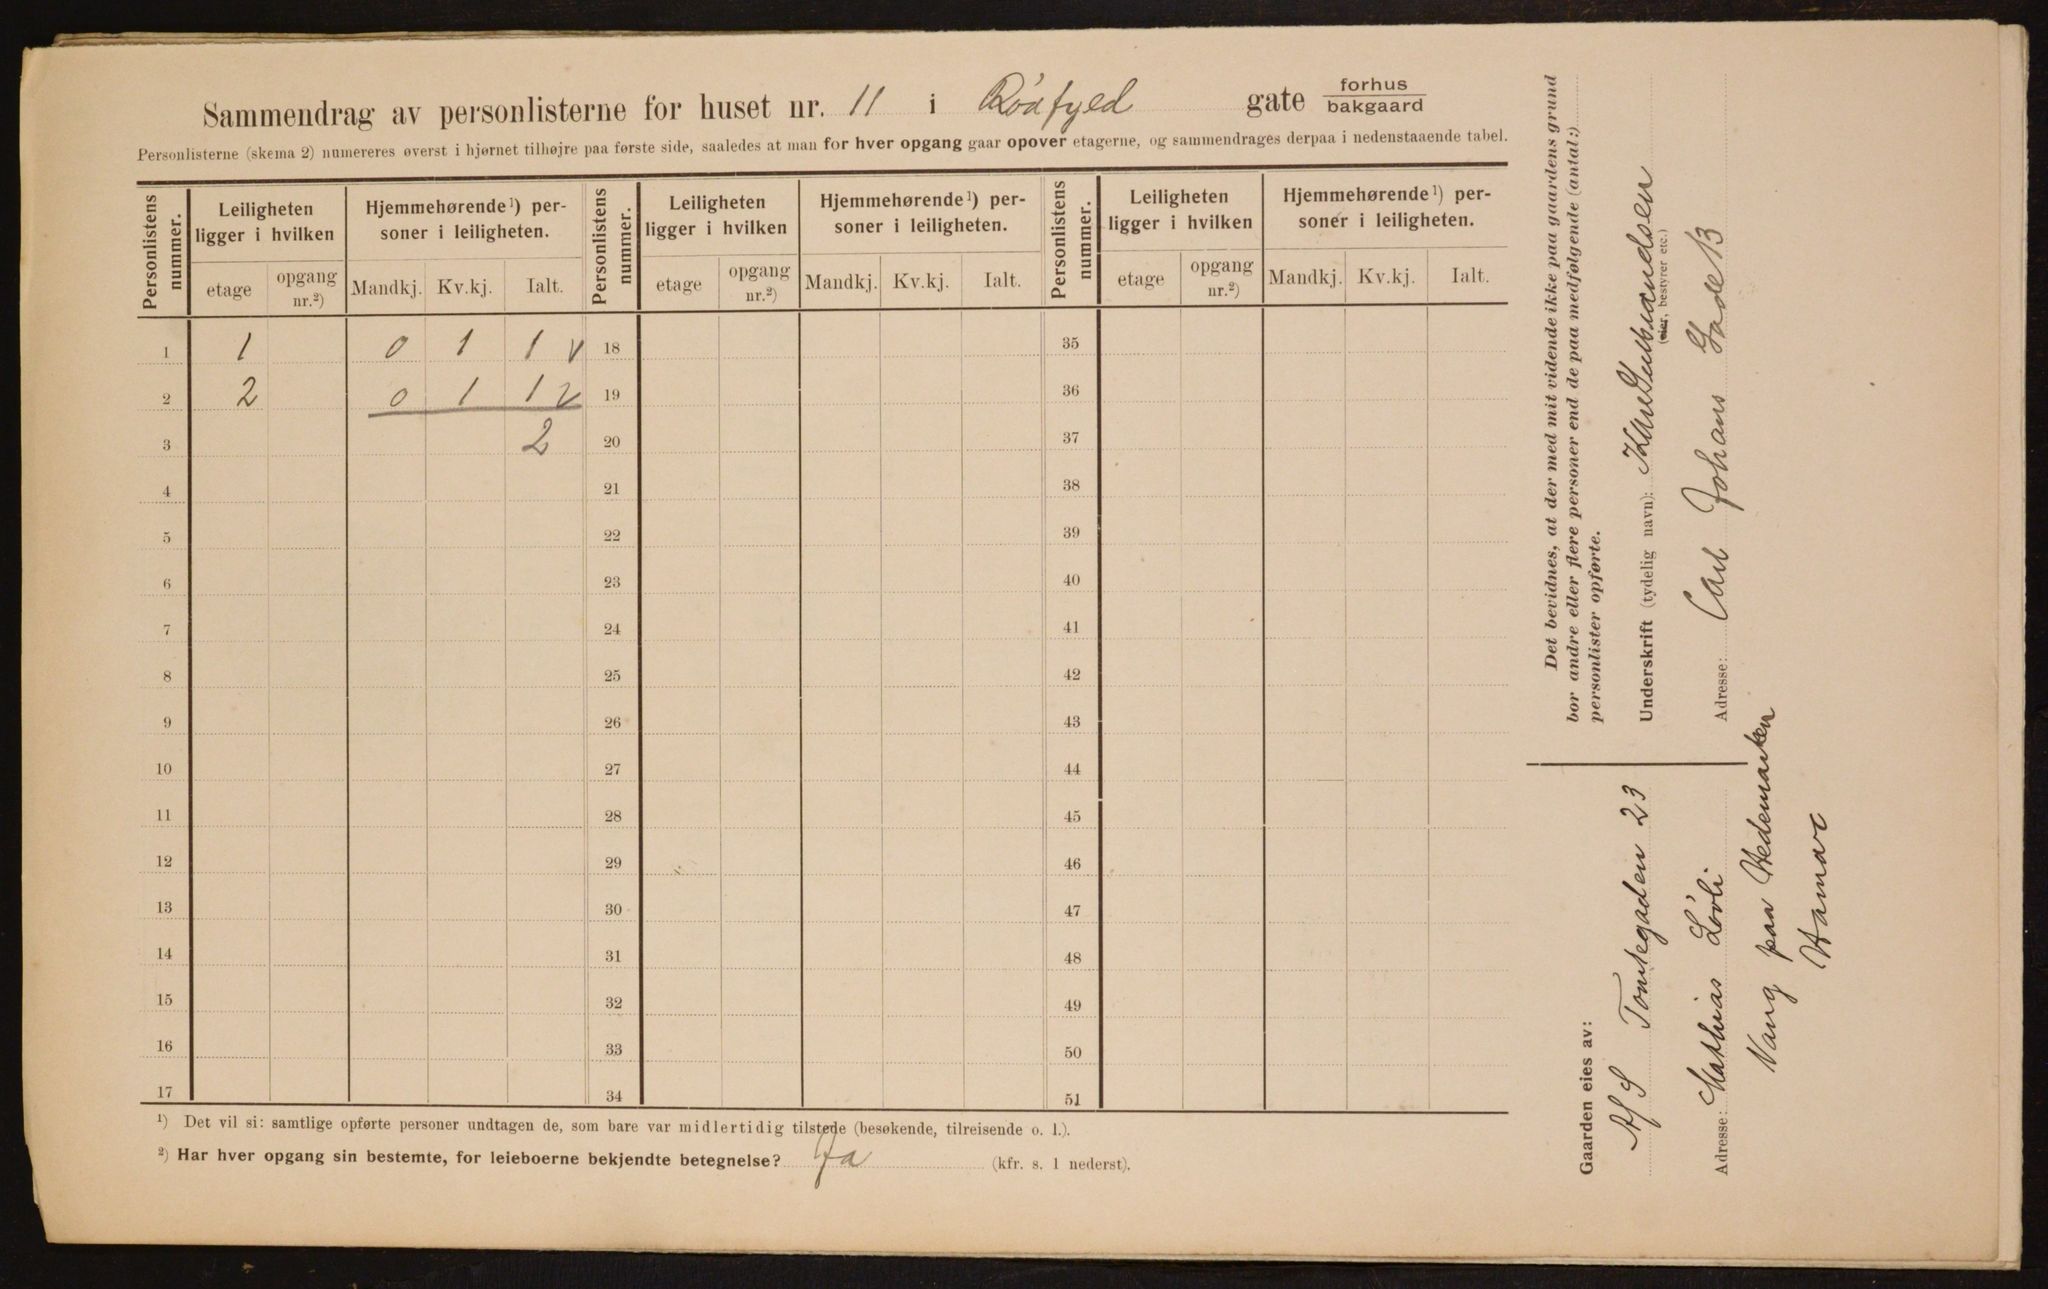 Sammendrag av personlisterne for huset nr. 11 i Rödfyld gate forhus bakgaard
Personlisterne (skema 2) numereres øverst i hjørnet tilhøjre paa første side, saaledes at man for hver opgang gaar opover etagerne, og sammendrages derpaa i nedenstaaende tabel.
Personlistens nummer. Leiligheten ligger i hvilken Hjemmehørende ¹) personer i leiligheten. Personlistens nummer. Leiligheten ligger i hvilken Hjemmehørende ¹) personer i leiligheten. Personlistens nummer. Leiligheten ligger i hvilken Hjemmehørende ¹) personer i leiligheten.
etage opgang nr.²) Mandkj. Kv.kj. Ialt. etage opgang nr.²) Mandkj. Kv.kj. Ialt. etage opgang nr.²) Mandkj. Kv.kj. Ialt.
1 1 0 1 1 v 18 35
2 2 0 1 1 v 19 36
3 2 20 37
4 21 38
5 22 39
6 23 40
7 24 41
8 25 42
9 26 43
10 27 44
11 28 45
12 29 46
13 30 47
14 31 48
15 32 49
16 33 50
17 34 51
¹) Det vil si: samtlige opførte personer undtagen de, som bare var midlertidig tilstede (besøkende, tilreisende o. l.).
²) Har hver opgang sin bestemte, for leieboerne bekjendte betegnelse? Ja (kfr. s. 1 nederst).
Det bevidnes, at der med mit vidende ikke paa gaardens grund
bor andre eller flere personer end de paa medfølgende (antal:)
personlister opførte.
Underskrift (tydelig navn): Kåre Gulbrandsen
(eier, bestyrer etc.)
Adresse: Carl Johans Gade 13
Gaarden eies av:
A/S Tomtegaden 23
Adresse: Mathias Lövli
Vang paa Hedemarken
Hamar